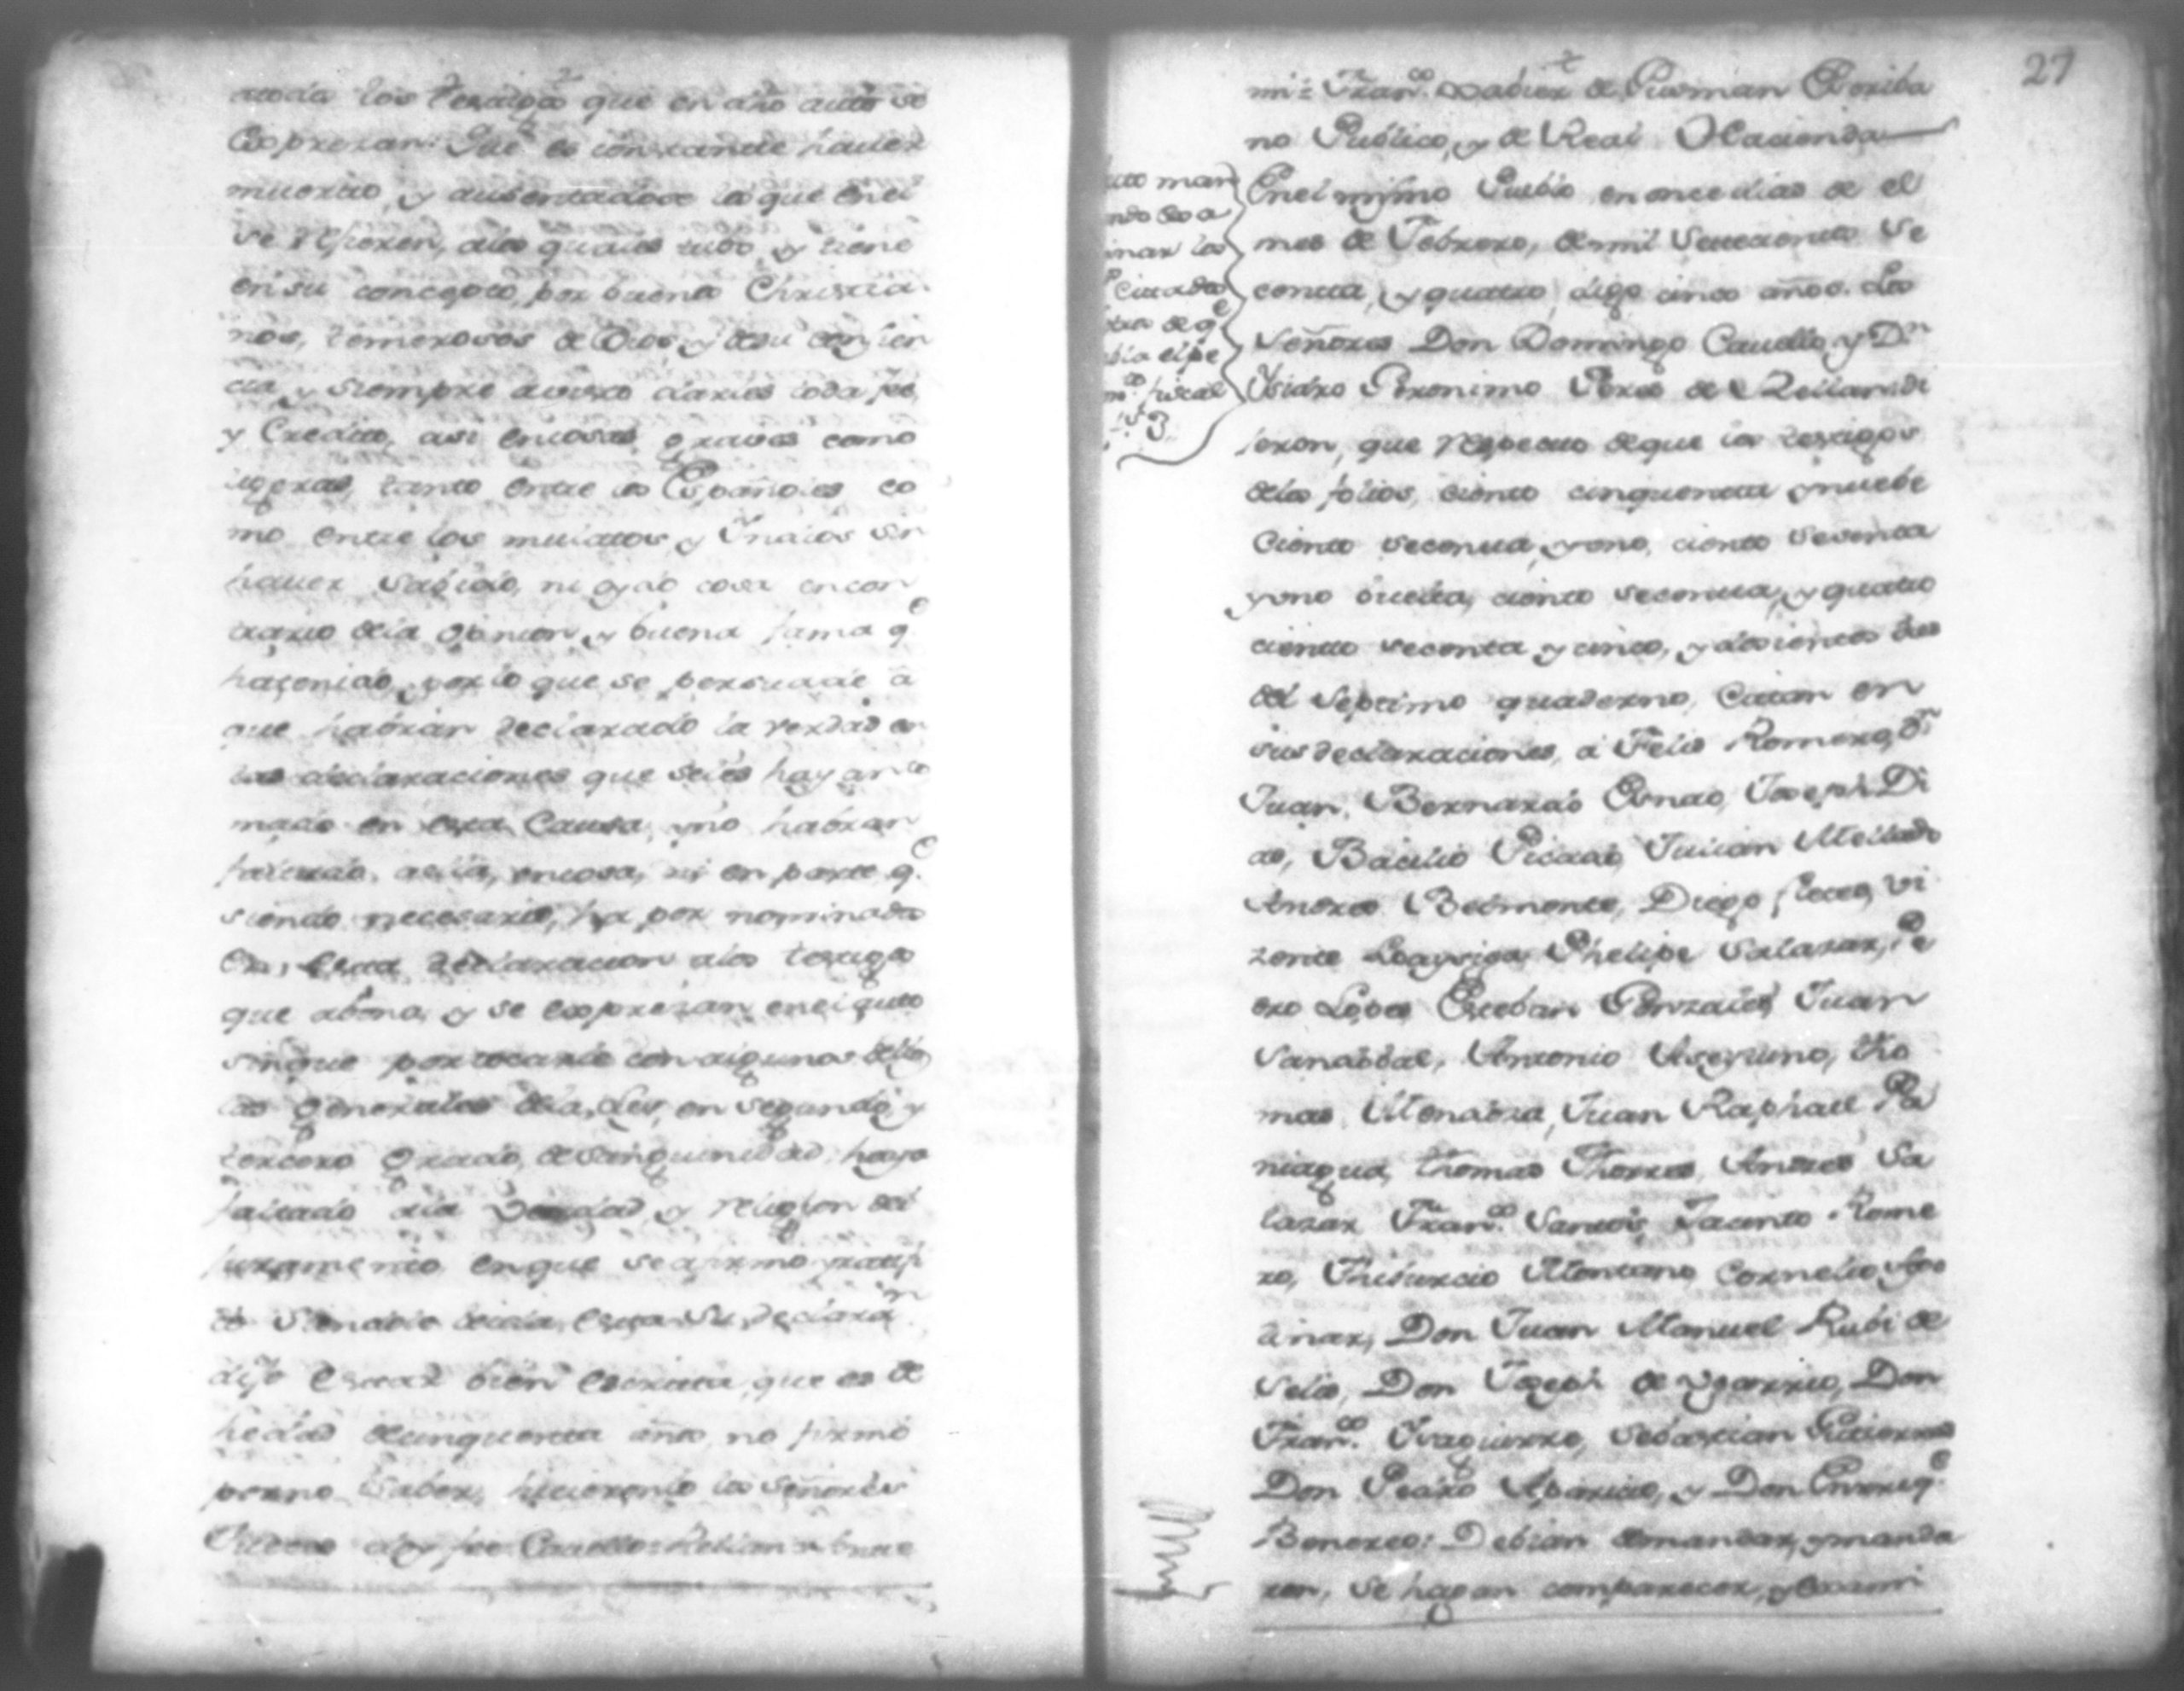 a toda los testigos que en dho auto se
Expresan: Que es constante haver
muerto, y ausentadose los que en el
se refieren, a los quales tubo, y tiene
en su concepto por buenos Christia
nos, temerosos de Dios, y de su concien
cia, y siempre a visto darles toda fee,
y Credito, asi en cosas graves como
ligeras, tanto entre los Españoles co
mo entre los mulatos, y Indios sin
haver sabido, ni oydo cosa en con
trario de la opinion, y buena fama q.e
ha tenido, por lo que se persuade a
que habran declarado la verdad en
las declaraciones que se les hayan to
mado en esta Causa, y no habran
faltado a ella, en cosa, ni en parte, q.e
siendo necesario, ha por nominados
En esta declaracion a los testigos
que abona, y se expresan en el auto
sin que por tocarle con algunos de ellos
las generales de la Ley, en segundo, y
tercero grado de sanguinidad, haya
faltado a la Verdad, y religion del
juramento en que se afirmo, y ratifi
co Siendole leida esta su declara.n
dijo estar bien escrita, que es de
hedad de cinquenta años, no firmo
por no saber, hicieronlo los Señores
Jueces doy fee Cauallo: Rellan: ante
27
mi: Fran.co Xabier de Gusman Escriba
no Publico, y de Real Hacienda
uto man
ndo exa
inar los
Citados
de q.e
bla el pe
m.to fiscal
En el mismo Pueblo en once dias de el
mes de Febrero, de mil Setecientos Se
centa, y quatro, digo cinco años. Los
Señores Don Domingo Cauallo, y D.n
Ysidro Geronimo Peres de Rellan di
jeron, que respecto de que los testigos
de los folios, ciento cinquenta y nuebe
Ciento secenta, y uno, ciento sesenta
y uno buelta, ciento secenta, y quatro
ciento secenta y cinco, y docientos dos
del Septimo quaderno, Citan en
sus declaraciones, a Felis Romero, D.n
Juan, Bernardo Obnao, Joseph Di
as, Bacilio Picado, Julian Mellado
Andres Belmonte, Diego flores, Vi
zente Loaysiga, Phelipe Salazar, Pe
dro Lopes, Esteban Gonzales, Juan
Sanabbal, Antonio Aseytuno, Tho
mas, Menabra, Juan Raphael Pa
niagua, Thomas Thorres, Andres Sa
lazar, Fran.co Santois, Jacinto Rome
ro, Thiburcio Montano, Cornelio Mo
linar, Don Juan Manuel Rubi de
Selis, Don Joseph de Ygarrio, Don
Fran.co Ysaguirre, Sebastian Gutierres
Don Pedro Aparicio, y Don Enrriq.e
Benereo: Debian de mandar, y manda
ron, se hagan comparecer, y exami